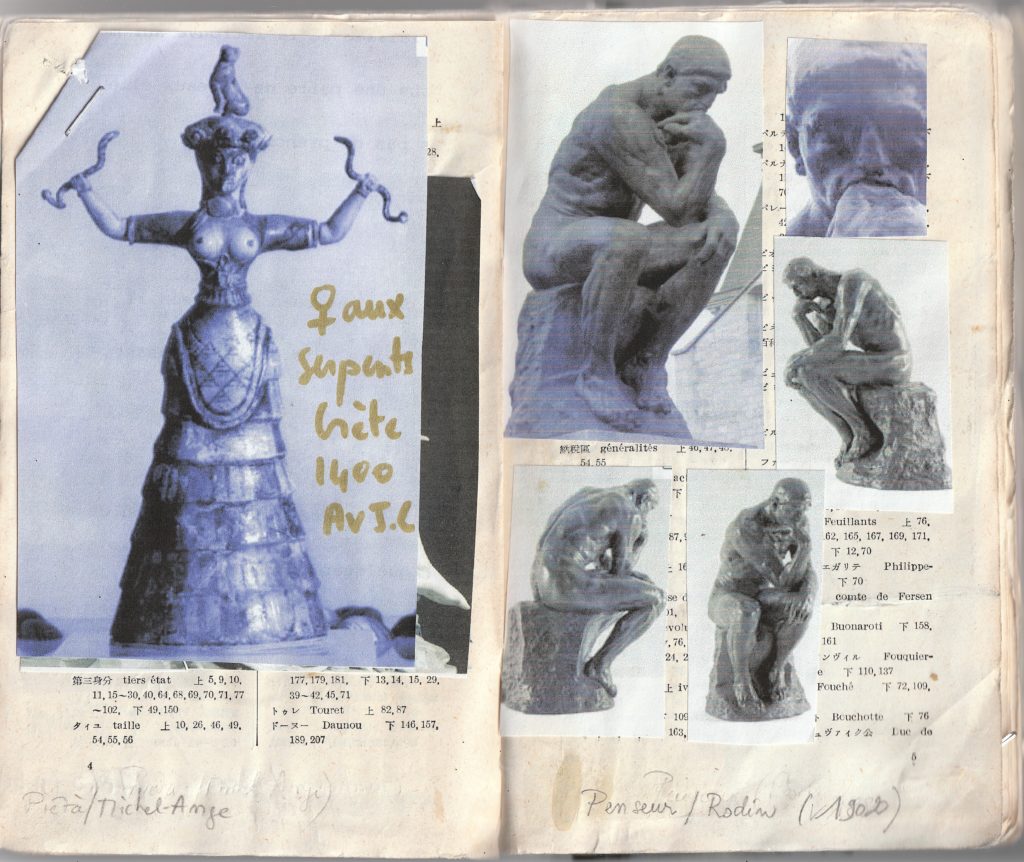 上
28.
♀ aux
serpents
Crète
1400
Av J.C
第三身分 tiers état 上 5, 9, 10,
11, 15~30, 40, 64, 68, 69, 70, 71, 77
~102, 下 49, 150
タイユ taille 上 10, 26, 46, 49,
54, 55, 56
177, 179, 181, 下 13, 14, 15, 29,
39~42, 45, 71
トゥレ Touret 上 82, 87
ドーヌー Daunou 下 146, 157,
189, 207
4
Pietà/Michel-Ange
納税區 généralités 上 46, 47, 48,
54, 55
Feuillants 上 76,
62, 165, 167, 169, 171,
下 12, 70
エガリテ Philippe-
下 70
comte de Fersen
Buonaroti 下 158,
161
ンヴィル Fouquier-
下 110, 137
Fouché 下 72, 109,
ト Bouchotte 下 76
ュヴァイク公 Duc de
109
163,
5
Penseur/Rodin